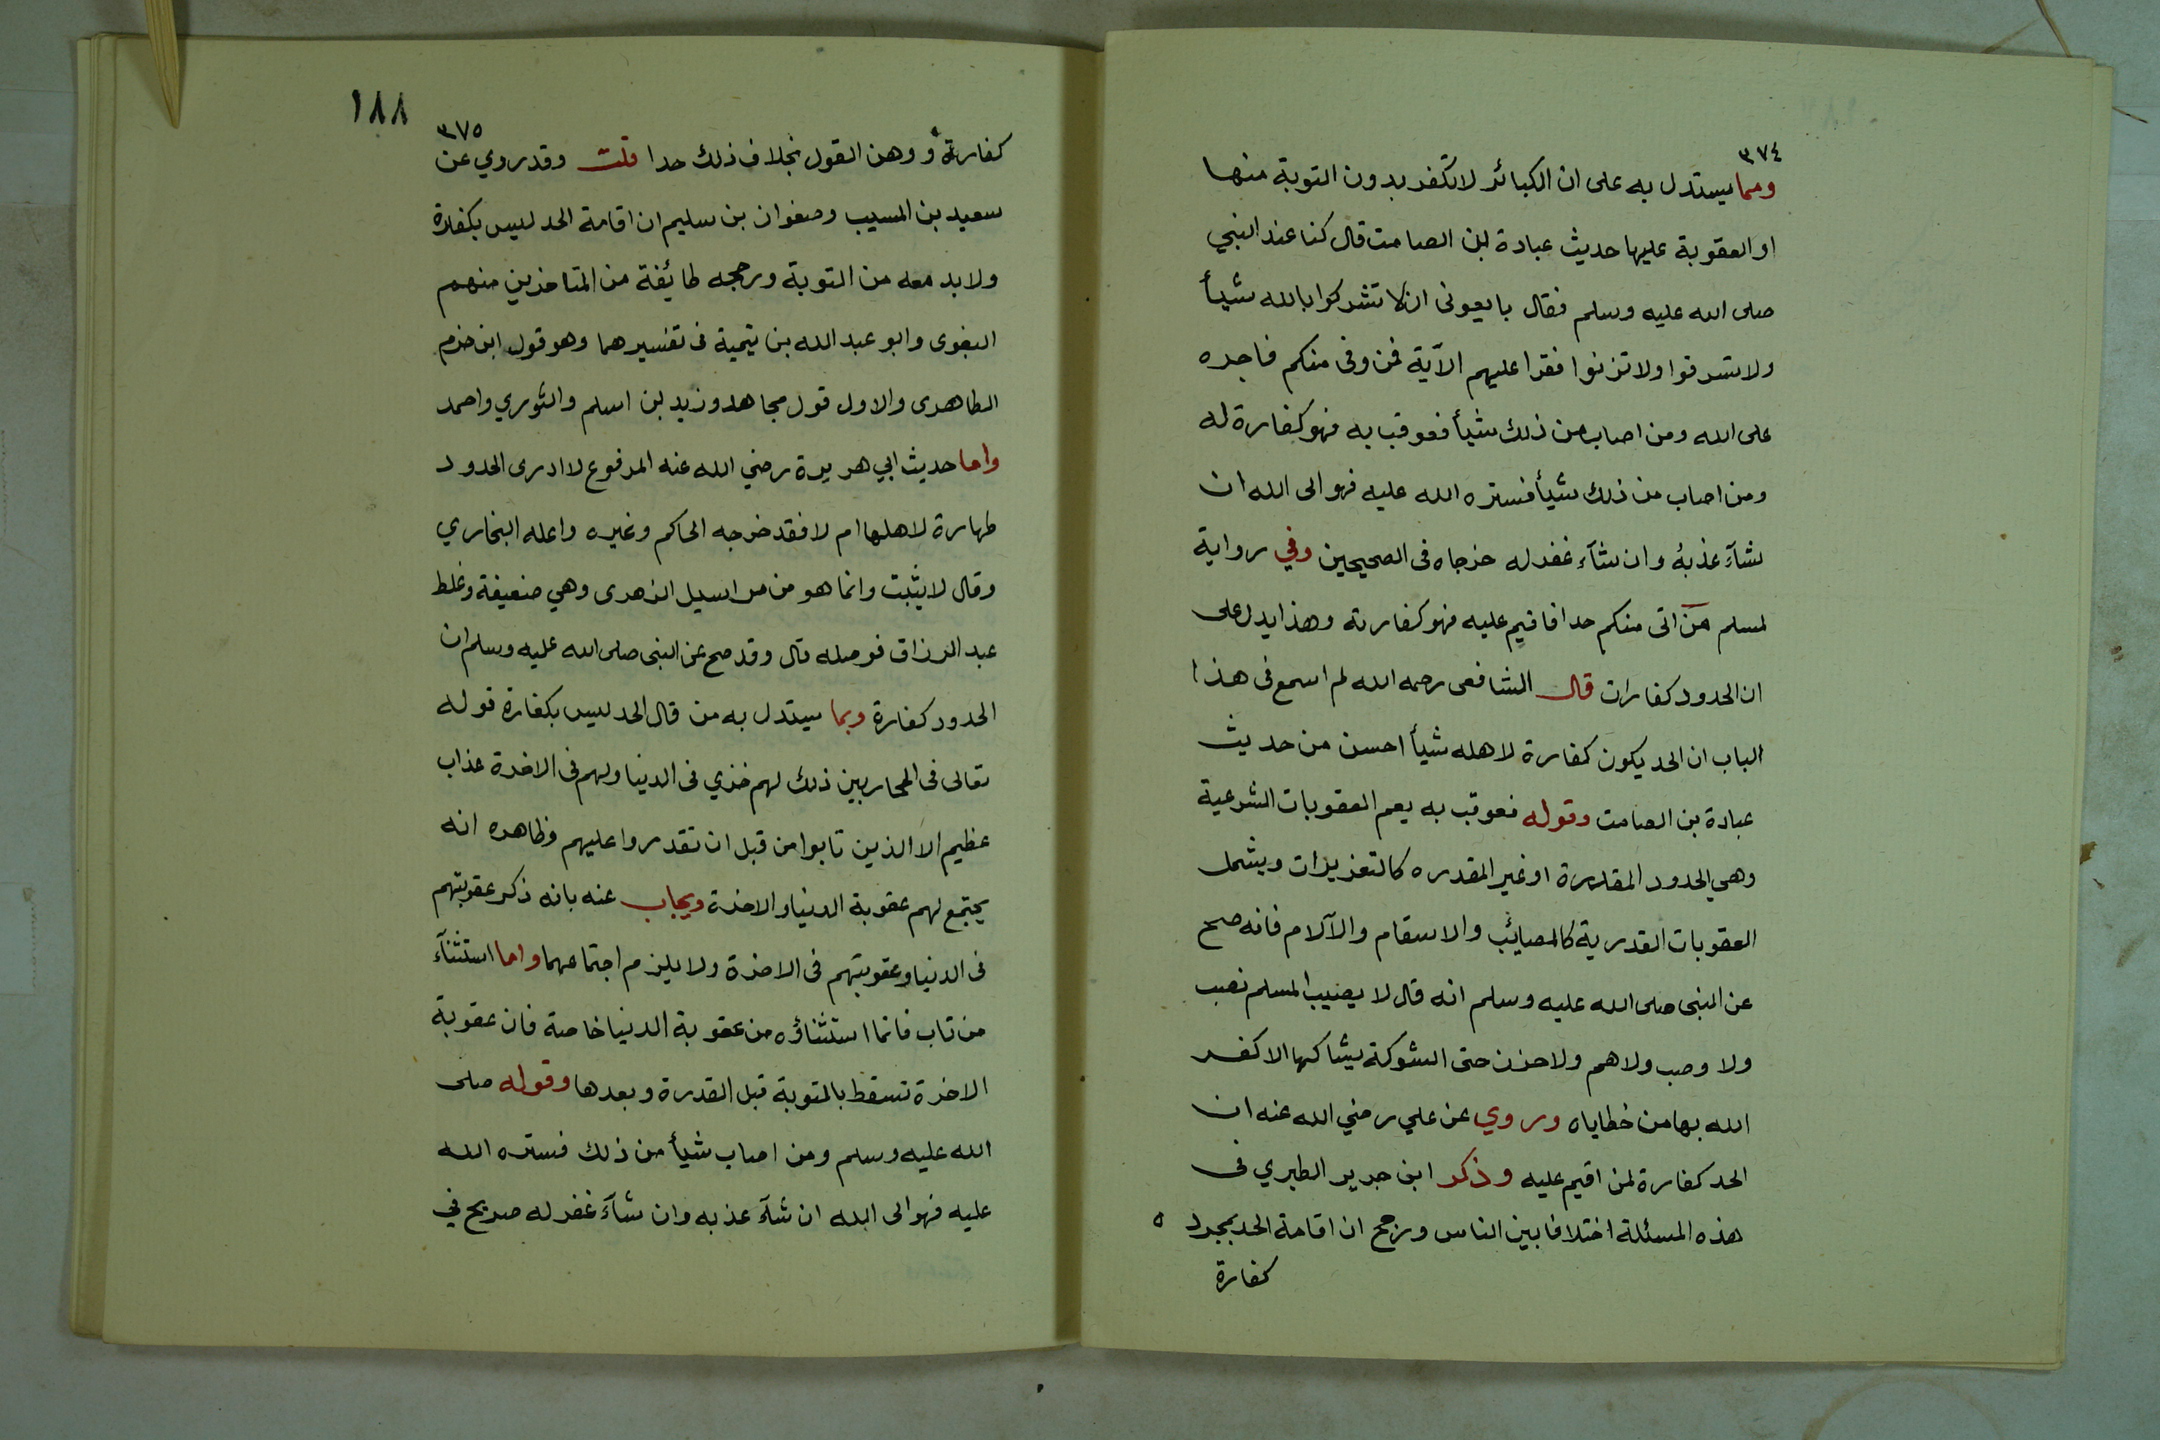 ٣٧٤
ومما يستدل به على ان الكبائر لا تكفر بدون التوبة منها
او العقوبة عليها حديث عبادة ابن الصامت قال كنا عند النبي
صلى الله عليه وسلم فقال بايعونى ان لا تشركوا بالله شيأ
ولا تسرقوا ولا تزنوا فقرا عليهم الآية فمن وفى منكم فاجره
على الله ومن اصاب من ذلك شيأ فعوقب به فهو كفارة له
ومن اصاب من ذلك شيأ فستره الله عليه فهو الى الله ان
شآء عذبهُ وان شآء غفر له خرجاه فى الصحيحين وفي رواية
لمسلم من اتى منكم حدا فاقيم عليه فهو كفارته وهذا يدل على
ان الحدود كفارات قال الشافعى رحمه الله لم اسمع فى هذا
الباب ان الحد يكون كفارة لاهله شيأ احسن من حديث
عبادة بن الصامت وقوله فعوقب به يعم العقوبات الشرعية
وهي الحدود المقدرة او غير المقدره كالتعزيرات ويشمل
العقوبات القدرية كالمصائب والاسقام والآلام فانه صح
عن النبى صلى الله عليه وسلم انه قال لا يصيب المسلم نصب
ولا وصب ولا هم ولا حزن حتى الشوكة يشاكها الا كفر
الله بها من خطاياه وروي عن علي رضي الله عنه ان
الحد كفارة لمن اقيم عليه وذكر ابن جرير الطبري فى
هذه المسئلة اختلافا بين الناس ورجح ان اقامة الحد بمجرد ه
كفارة
١٨٨
٣٧٥
كفارةٌ ووهن القول بخلاف ذلك جدا قلت وقد روي عن
سعيد بن المسيب وصفوان بن سليم ان اقامة الحد ليس بكفارة
ولا بد معه من التوبة ورجحه طائفة من المتاخرين منهم
البغوى وابو عبد الله بن تيمية فى تفسيرهما وهو قول ابن حزم
الظاهرى والاول قول مجاهد وزيد بن اسلم والثوري واحمد
واما حديث ابي هريرة رضي الله عنه المرفوع لا ادرى الحدود
طهارة لاهلها ام لا فقد خرجه الحاكم وغيره واعله البخاري
وقال لا يثبت وانما هو من مراسيل الزهرى وهي ضعيفة وغلط
عبد الرزاق فوصله قال وقد صح عن النبى صلى الله عليه وسلم ان
الحدود كفارة وبما يستدل به من قال الحد ليس بكفارة قوله
تعالى فى المحاربين ذلك لهم خزي فى الدنيا ولهم فى الاخرة عذاب
عظيم الا الذين تابوا من قبل ان تقدروا عليهم وظاهره انه
يجتمع لهم عقوبة الدنيا والاخرة ويجاب عنه بانه ذكر عقوبتهم
فى الدنيا وعقوبتهم فى الاخرة ولا يلزم اجتماعهما واما استثنآء
من تاب فانما استثناؤه من عقوبة الدنيا خاصة فان عقوبة
الاخرة تسقط بالتوبة قبل القدرة وبعدها وقوله صلى
الله عليه وسلم ومن اصاب شيأ من ذلك فستره الله
عليه فهو الى الله ان شآء عذبه وان شآء غفر له صريح في